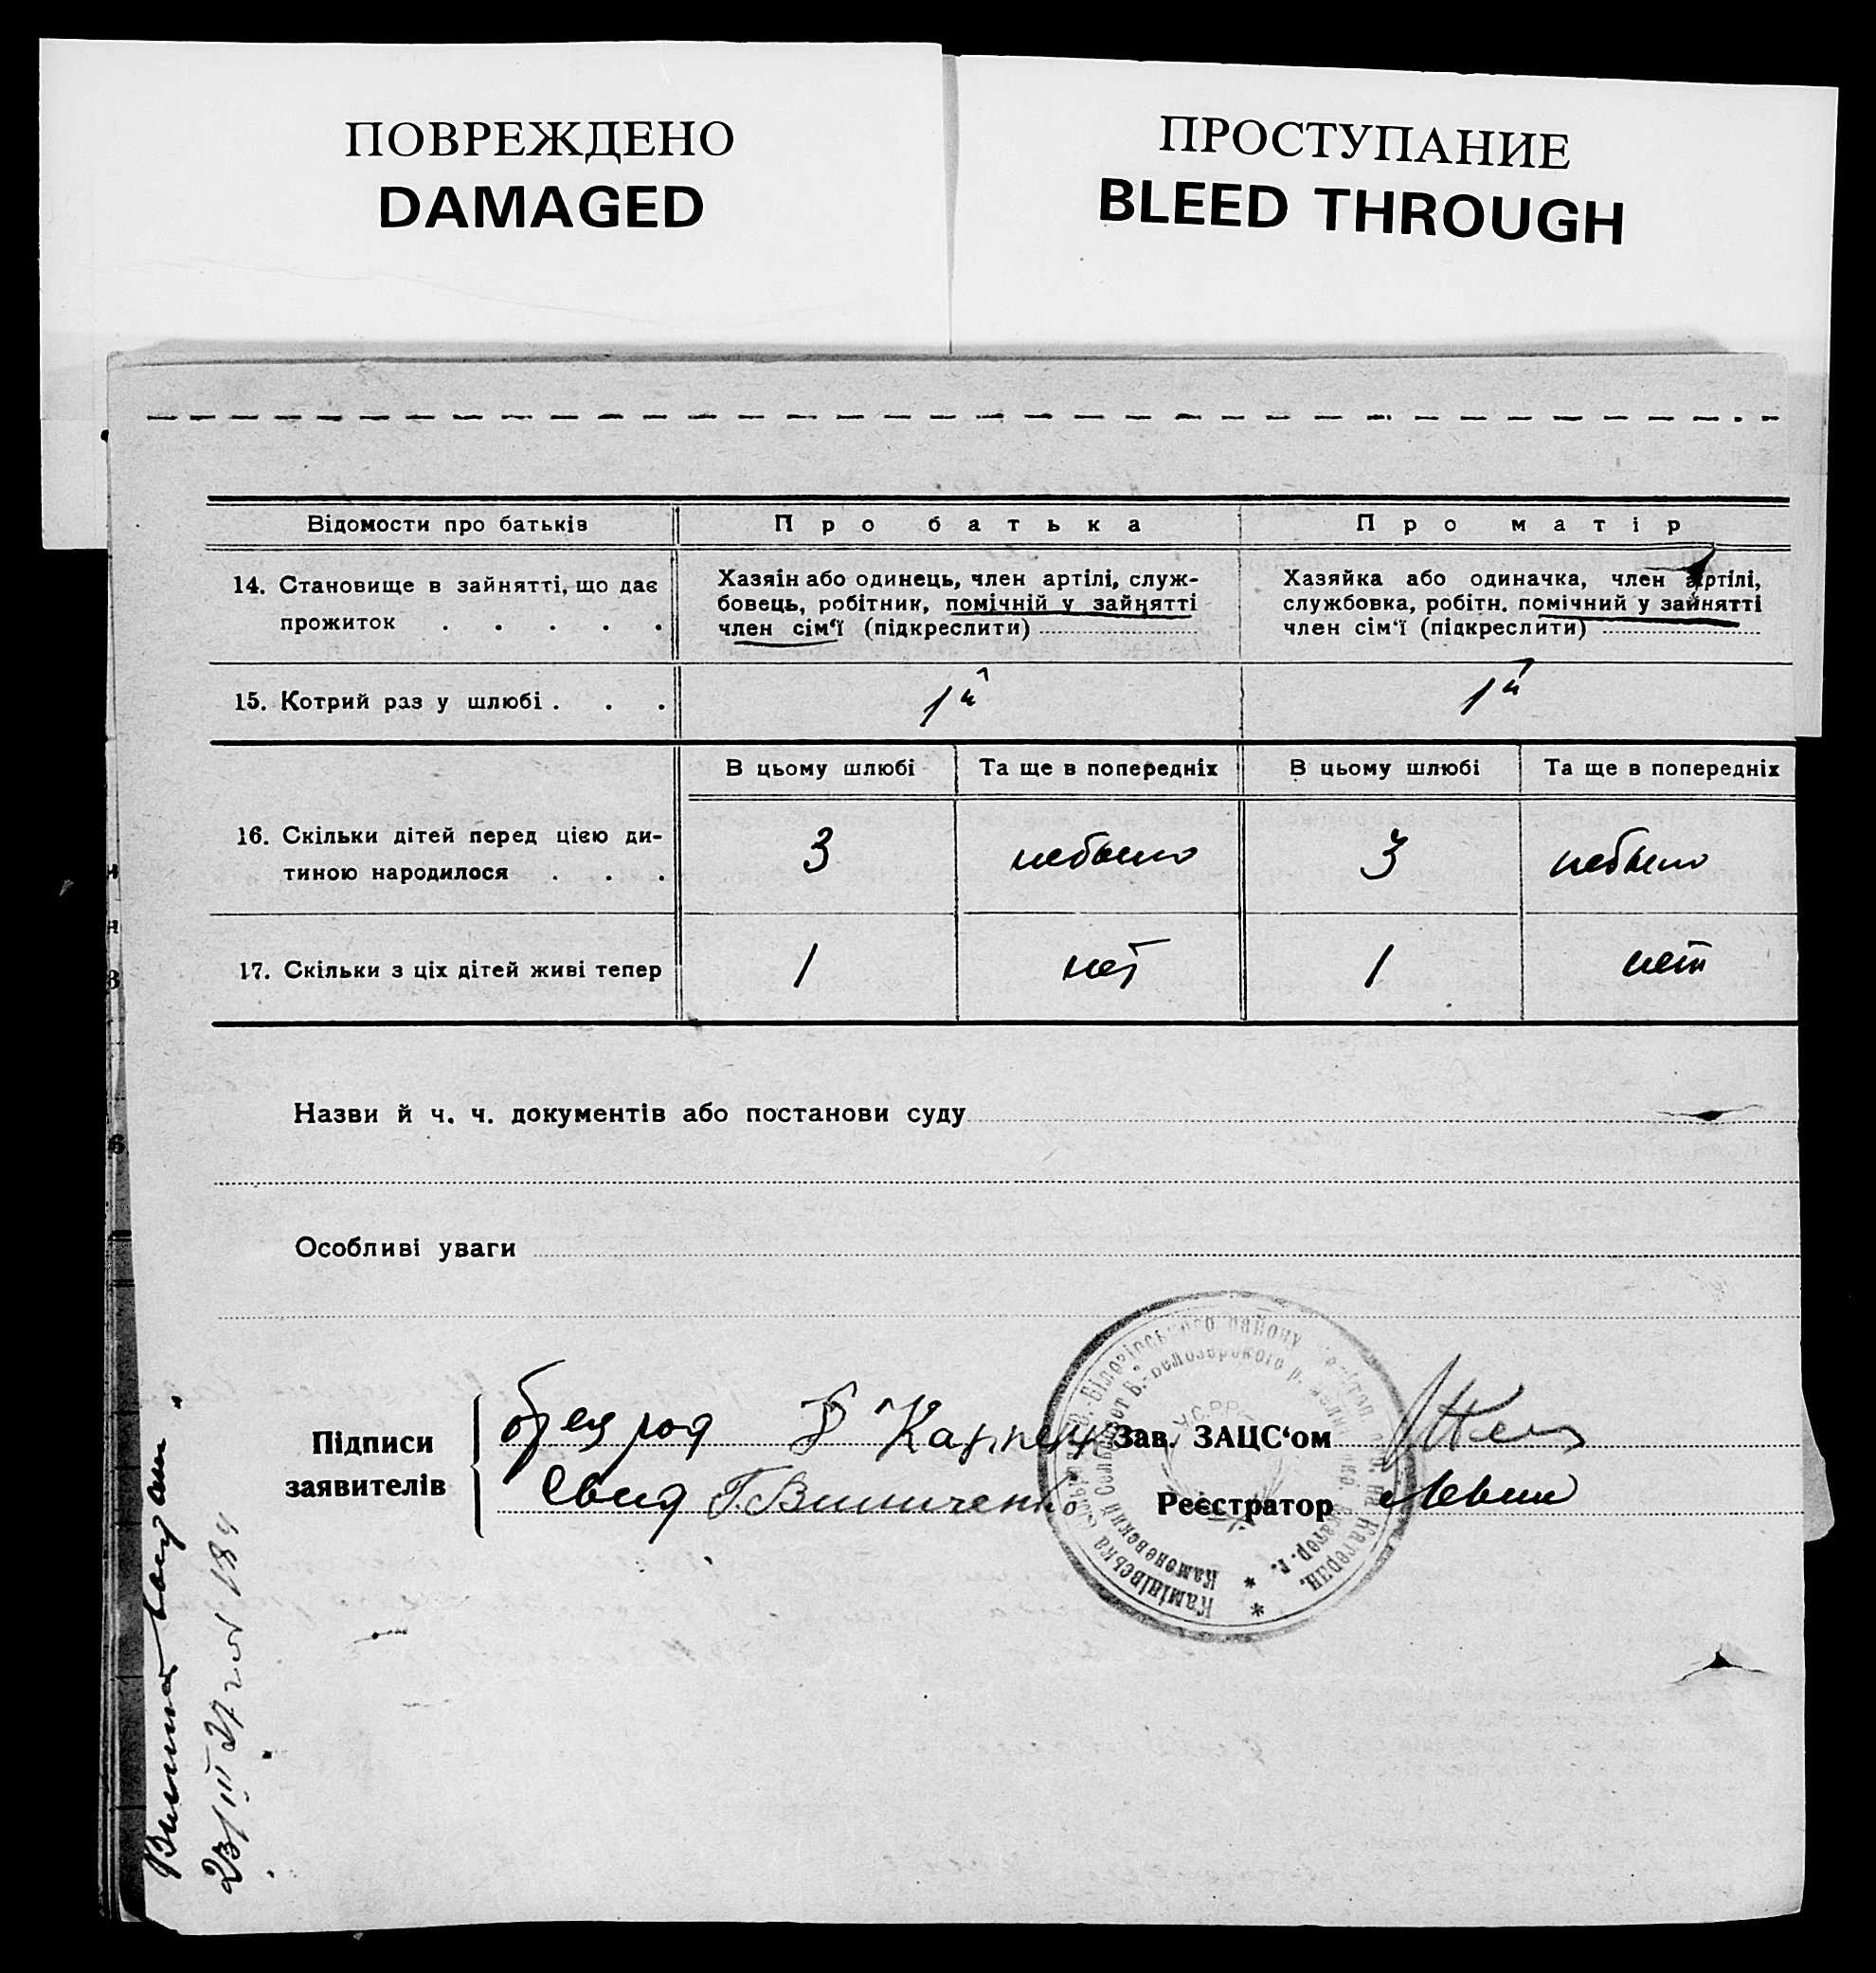 ПОВРЕЖДЕНО
DAMAGED
ПРОСТУПАНИЕ
BLEED THROUGH
Відомости про батьків
Про батька
Про матір
14. Становище в зайнятті, що дає
прожиток . . . . .
Хазяін або одинець, член артілі, служ-
бовець, робітник, помічній у зайнятті
член сім‘ї (підкреслити)
Хазяйка або одиначка, член артілі,
службовка, робітн. помічний у зайнятті
член сім‘ї (підкреслити)
15. Котрий раз у шлюбі . . .
1й
1й
В цьому шлюбі
Та ще в попередніх
В цьому шлюбі
Та ще в попередніх
16. Скільки дітей перед цією ди-
тиною народилося . . .
3
небыло
3
небыло
17. Скільки з ціх дітей живі тепер
1
нет
1
нет
Назви й ч. ч. документів або постанови суду
Особливі уваги
Підписи
заявителів
Свид Г. Винниченко
Зав. ЗАЦС‘ом
Реєстратор
Камінівська
Каменевский
У.С.Р.Р.
23/III 27